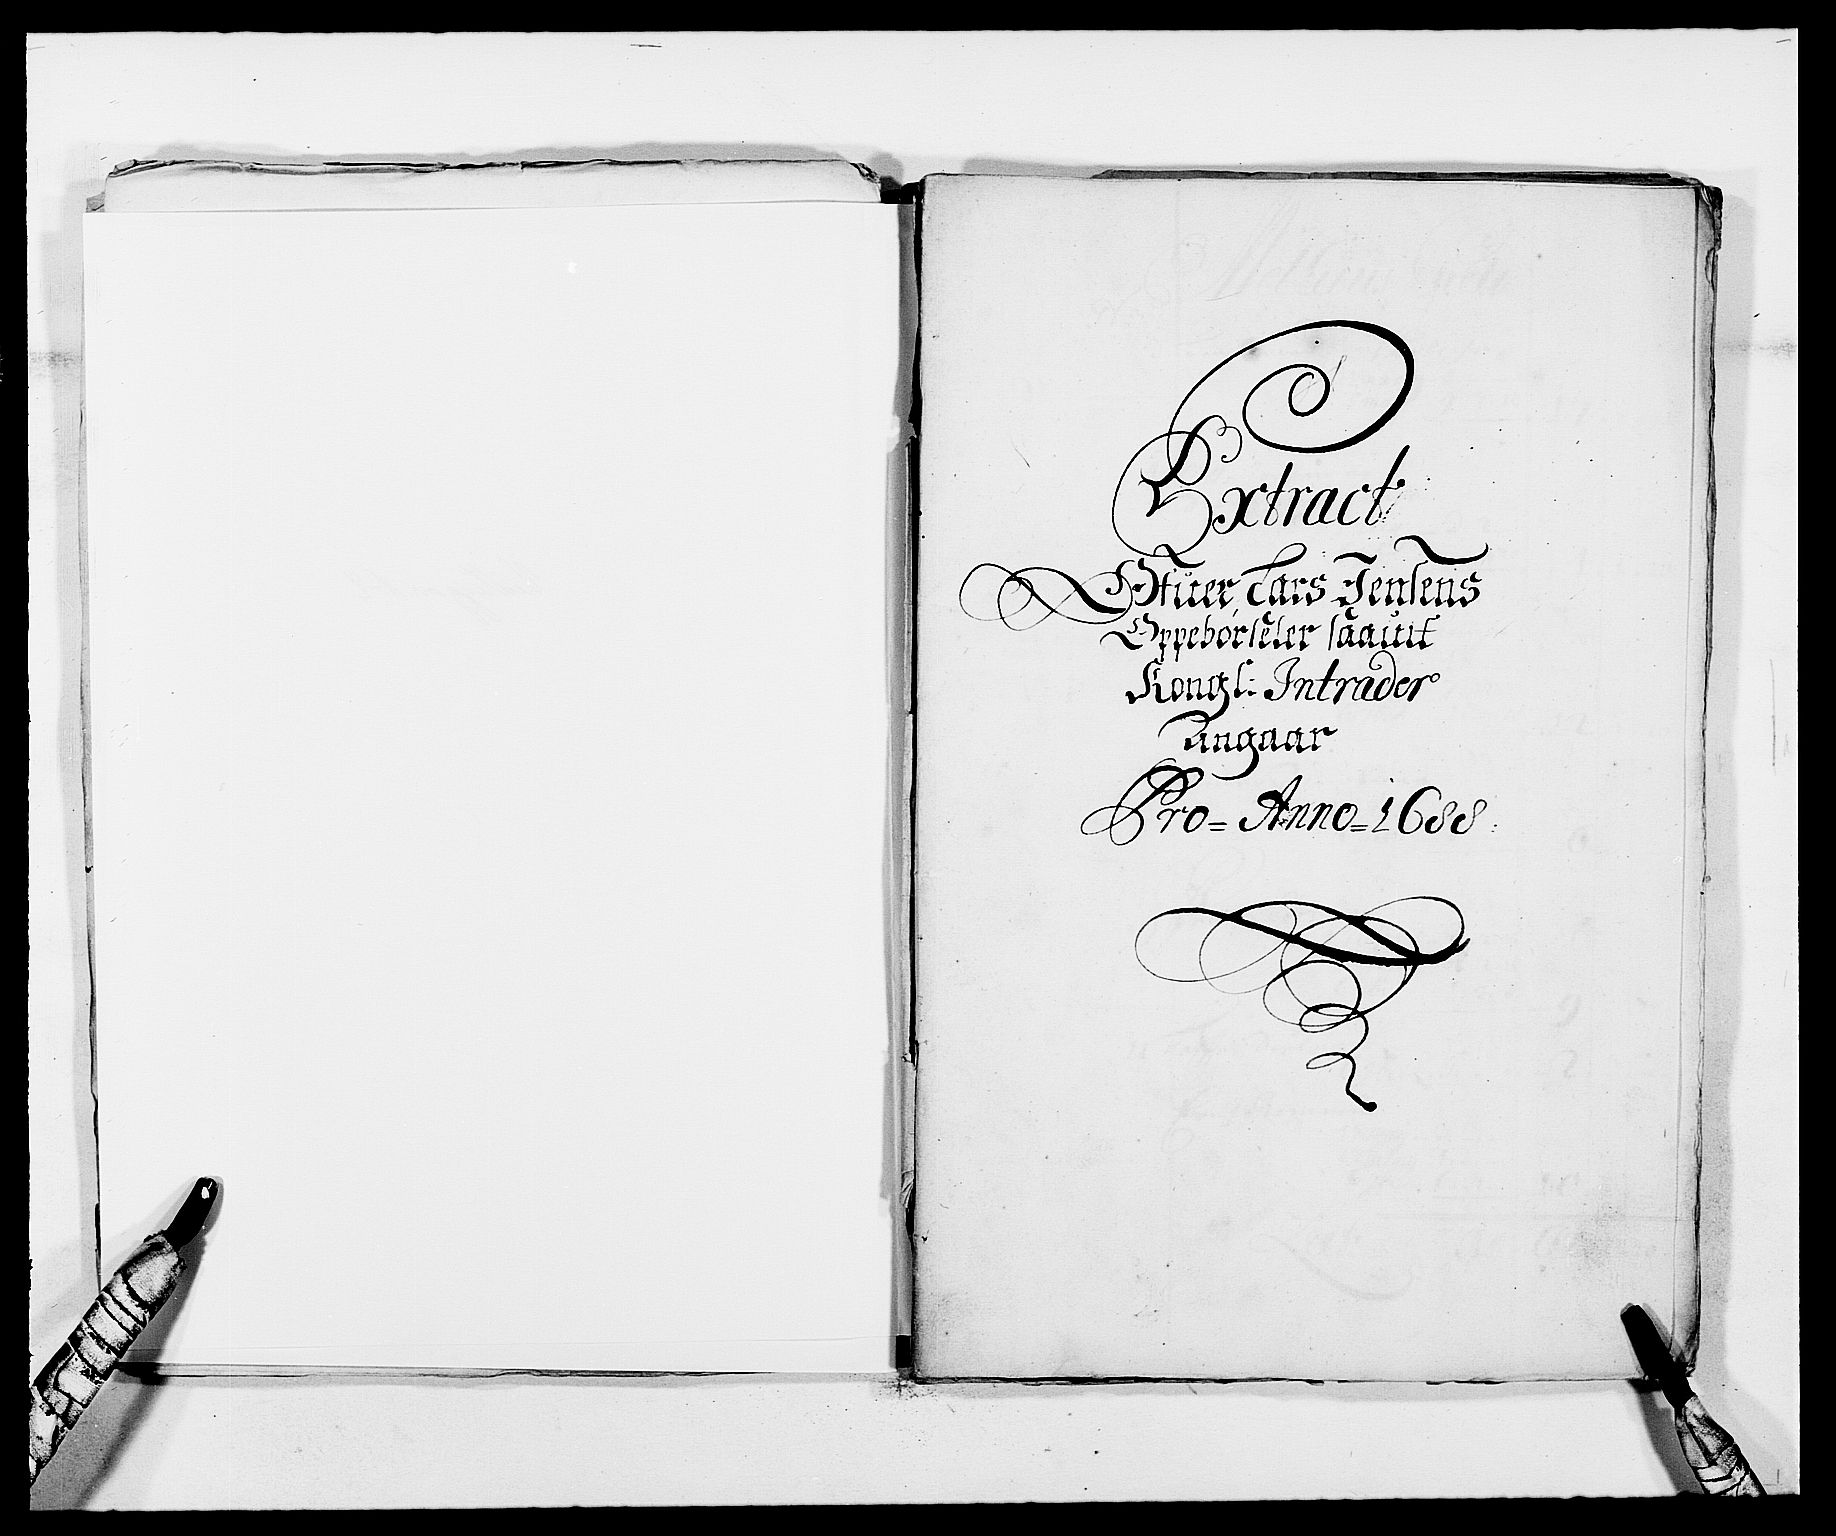 Extract
Offuer Lars Jensens
Oppebørseler saauit
Kongl: Intrader
Angaar
Pro= Anno=1688: